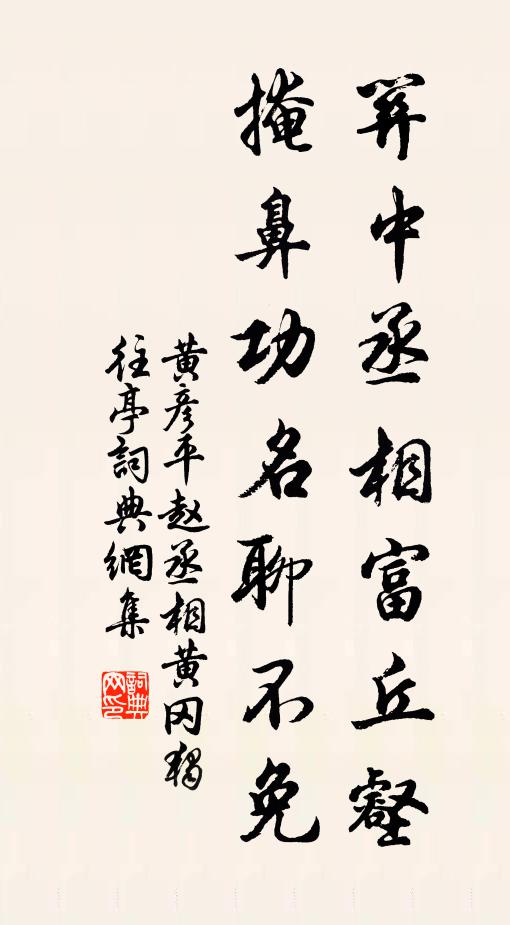 中丞相富丘壑
掩鼻功名聊不免
黄彦平赵丞相黄冈獨
往亭詞典網集
詞典網印